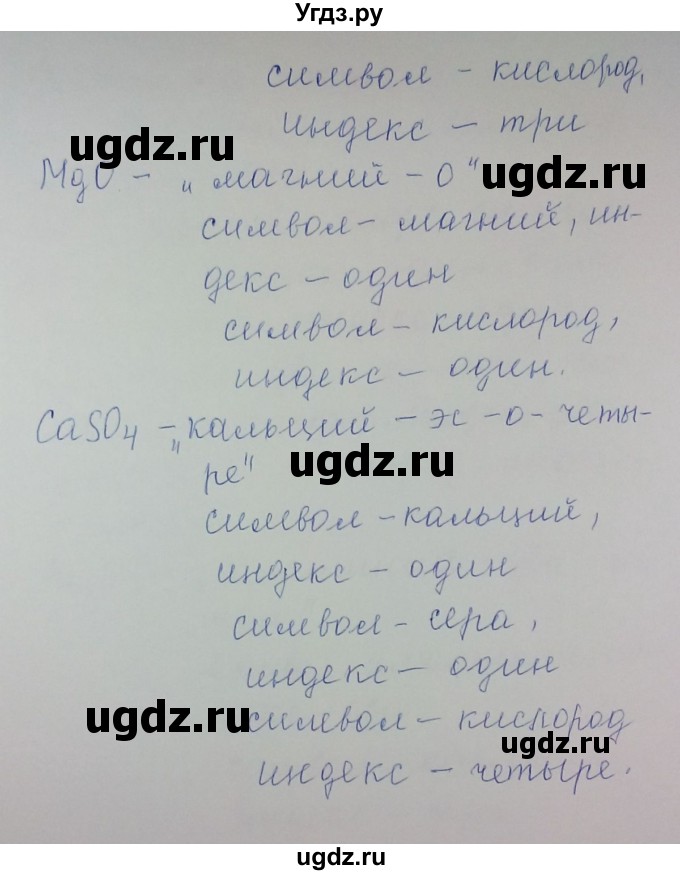 Угдз.ру
символ - кислород,
индекс - три
ugdz.ru
MgO - „магний - О"
ugdz.ru
символ - магний, ин-
декс - один
символ - кислород,
индекс - один.
CaSO4 - „кальций - эс - о - четы-
ре"
ugdz.ru
символ - кальций,
индекс - один
символ - сера,
индекс - один
ugdz.ru
символ - кислород
ugdz.ru
индекс - четыре.
ugdz.ru